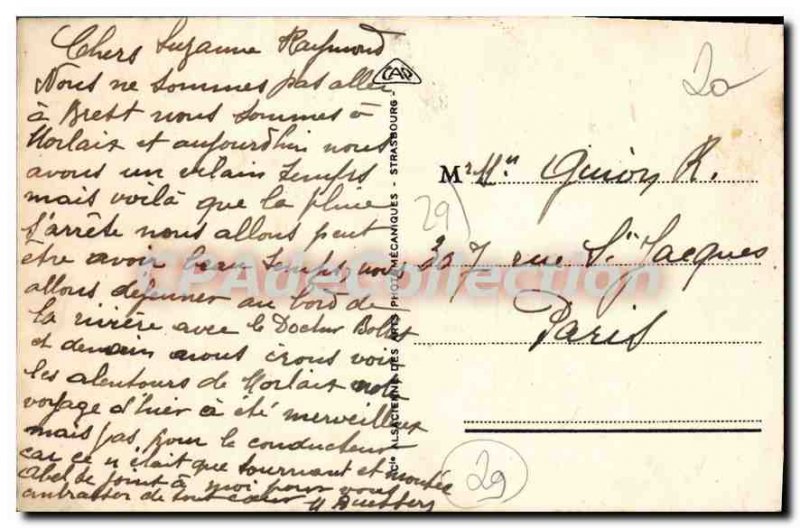 Chers Suzanne Raymond
Nous ne sommes pas allé
à Brest nous sommes à
Morlaix et aujourdhui nous
avons un vilain temps
mais voilà que la pluie
s'arrête nous allons peut
être avoir beau temps, nous
allons dejeuner au bord de
la rivière avec le Docteur
et demain nous irons voir
les alentours de Morlaix notre
voyage d'hier à été merveilleux
mais pas pour le conducteur
car ce n'était que tournant et montée
Abel se joint à moi pour vous
embrasser de tout cœur
CAP
Cie ALSACIENNE DES ARTS PHOTOMÉCANIQUES - STRASBOURG -
20
29
Mr Mme Guion R.
327 rue St Jacques
Paris
29
CPAdeCollection